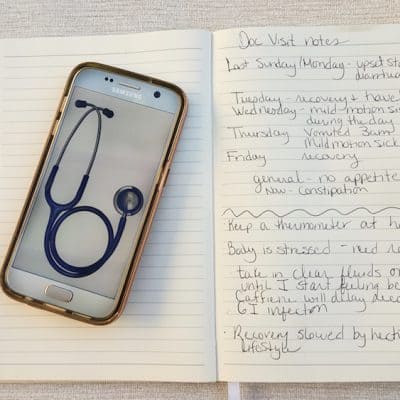 SAMSUNG
Doc Visit notes
Last Sunday/Monday - upset
Tuesday - recovery + trave
Wednesday - mild motion sick
during the day
Thursday Vomited 3am
Mild motion sick
Friday recovery
general - no appetite
Now - Constipation
Keep a thermometer at
Baby is stressed - need
take in clear fluids
until I start feeling
Caffeine will delay
GI infection
· Recovery slowed by
lifestyle